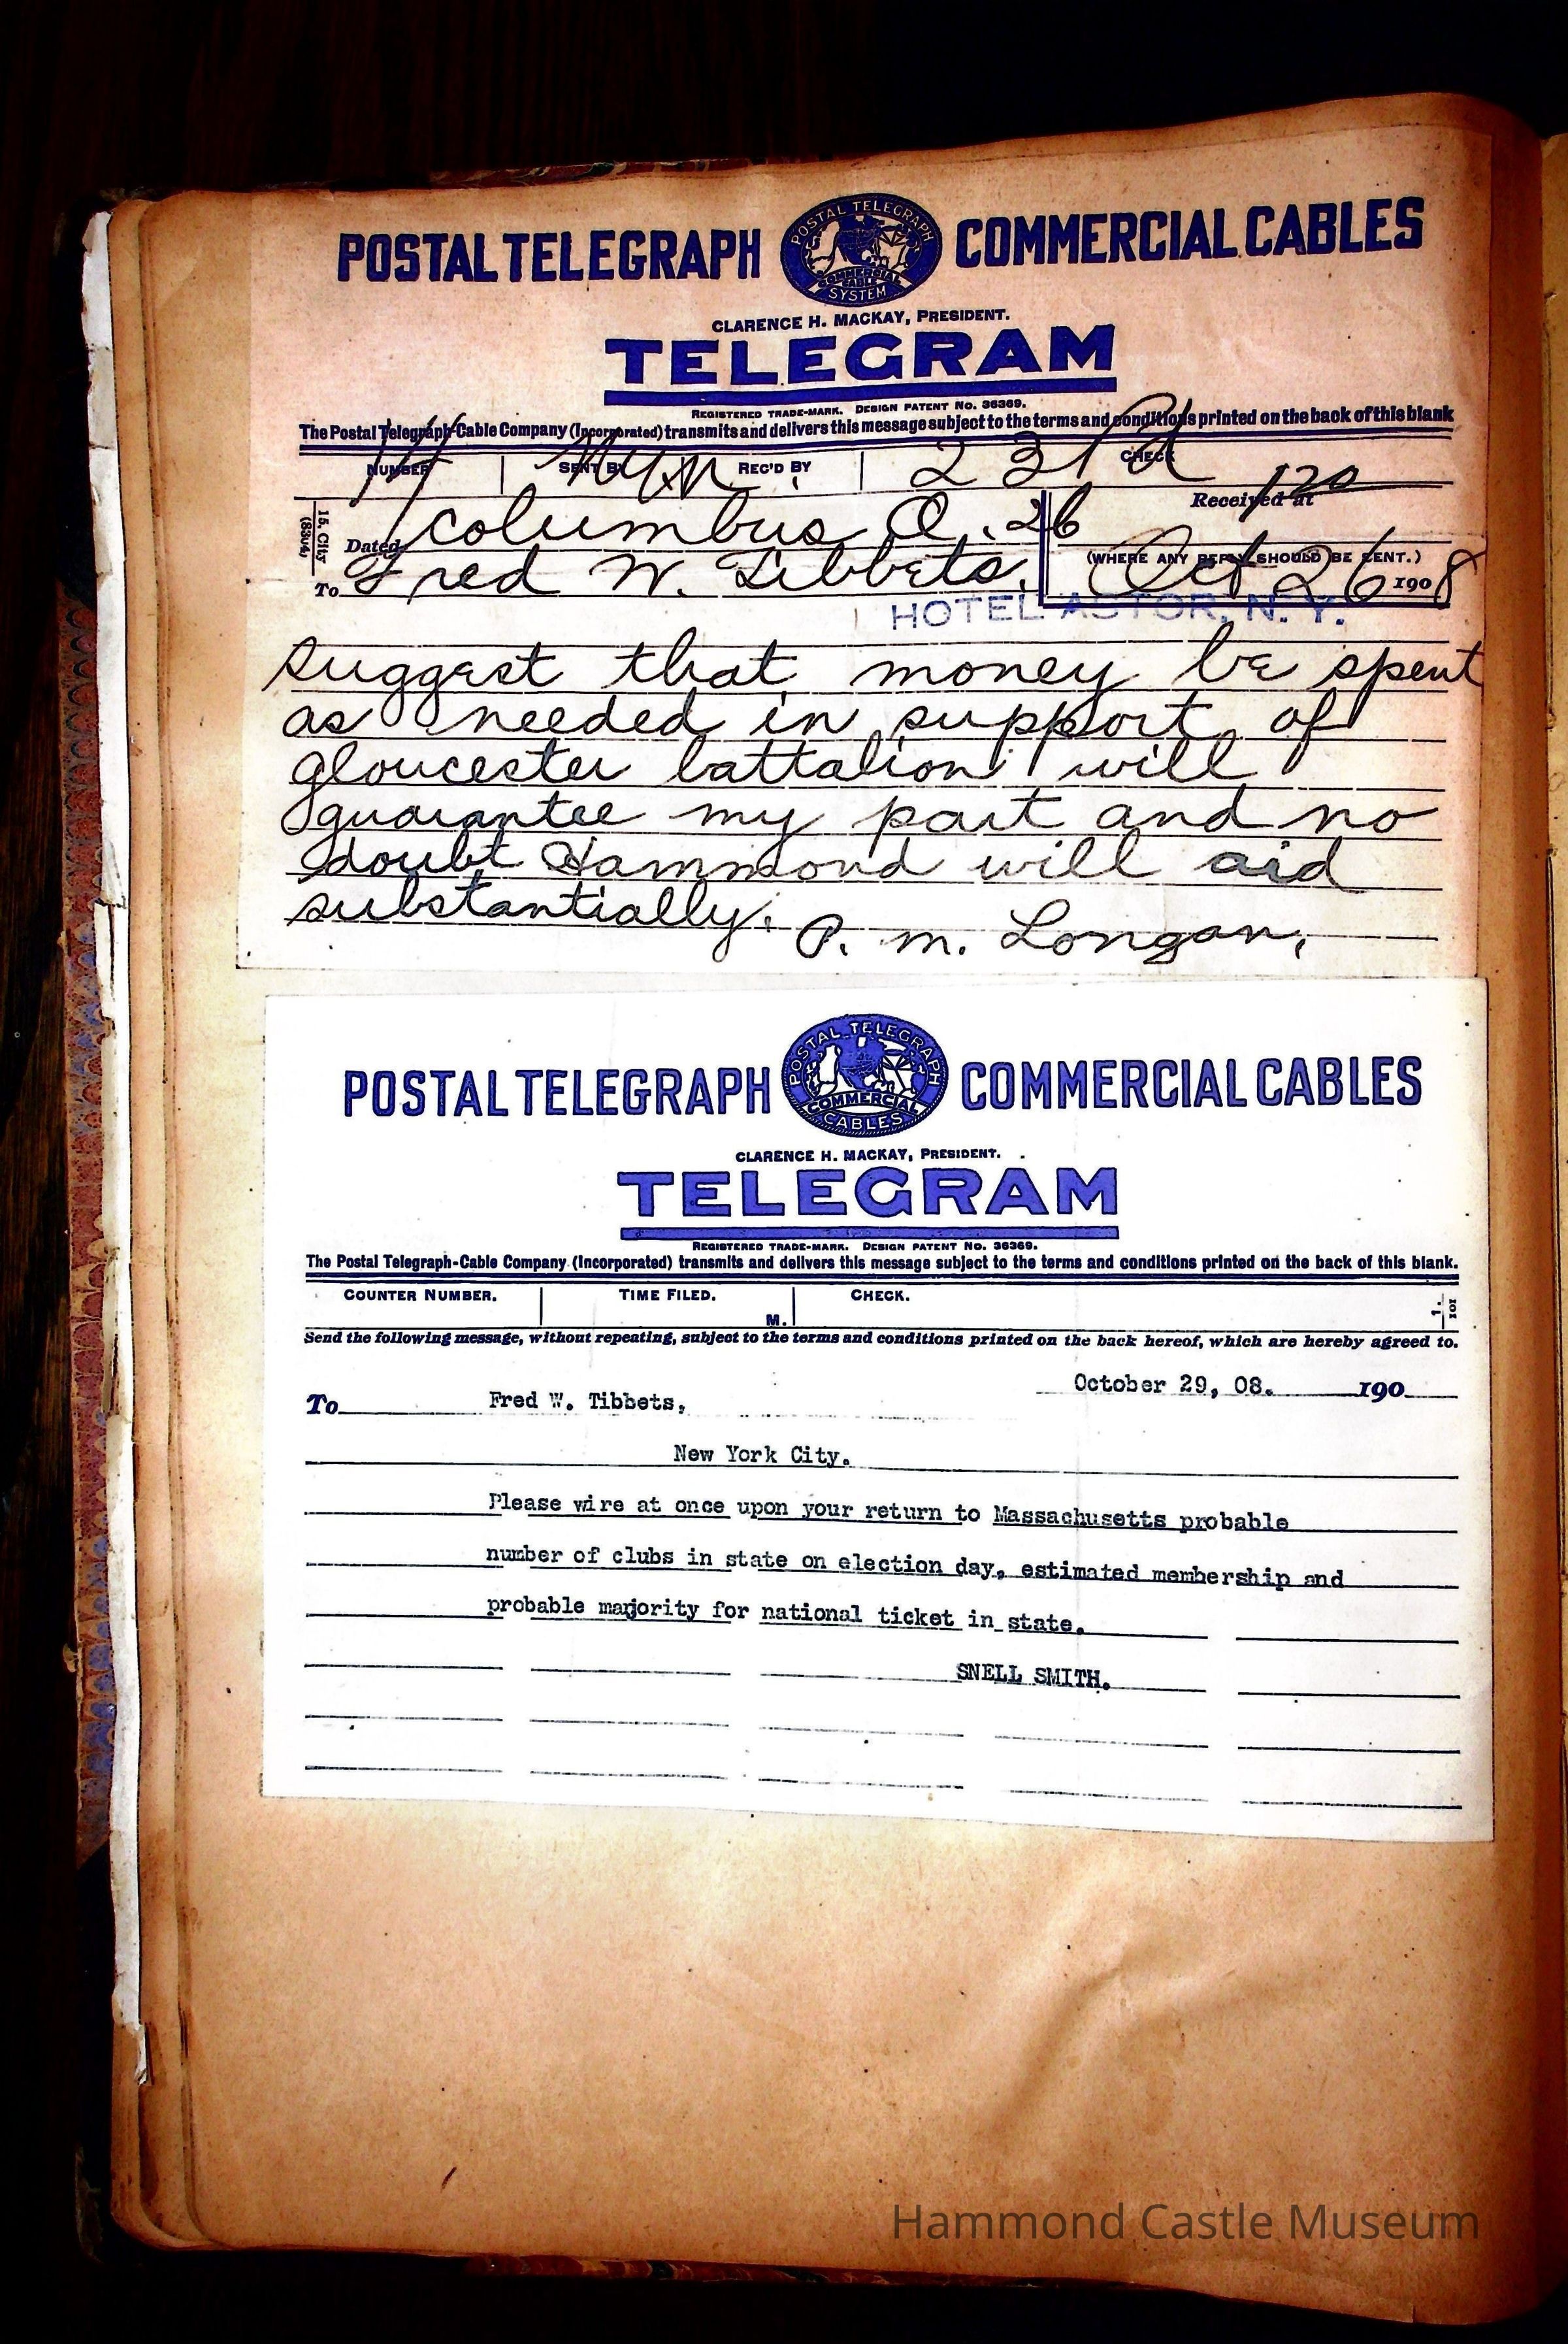 POSTAL TELEGRAPH COMMERCIAL CABLES
POSTAL TELEGRAPH COMMERCIAL CABLE SYSTEM
CLARENCE H. MACKAY, PRESIDENT.
TELEGRAM
REGISTERED TRADE-MARK. DESIGN PATENT No. 36369.
The Postal Telegraph-Cable Company (Incorporated) transmits and delivers this message subject to the terms and conditions printed on the back of this blank
NUMBER SENT BY REC'D BY CHECK
14 23 Pd
Received at 120
15. City
Dated Columbus O. 26
(WHERE ANY REPLY SHOULD BE SENT.)
To Fred W. Tibbets. Oct 26 1908
HOTEL ASTOR, N. Y.
suggest that money be spent
as needed in support of
gloucester battalion will
guarantee my part and no
doubt Hammond will aid
substantially.
P. M. Longan,
POSTAL TELEGRAPH COMMERCIAL CABLES
POSTAL TELEGRAPH COMMERCIAL CABLES
CLARENCE H. MACKAY, PRESIDENT.
TELEGRAM
REGISTERED TRADE-MARK. DESIGN PATENT No. 36369.
The Postal Telegraph-Cable Company (Incorporated) transmits and delivers this message subject to the terms and conditions printed on the back of this blank.
COUNTER NUMBER. TIME FILED. M. CHECK. 1. 101
Send the following message, without repeating, subject to the terms and conditions printed on the back hereof, which are hereby agreed to.
October 29, 08. 190
To Fred W. Tibbets,
New York City.
Please wire at once upon your return to Massachusetts probable
number of clubs in state on election day, estimated membership and
probable majority for national ticket in state.
SNELL SMITH.
Hammond Castle Museum